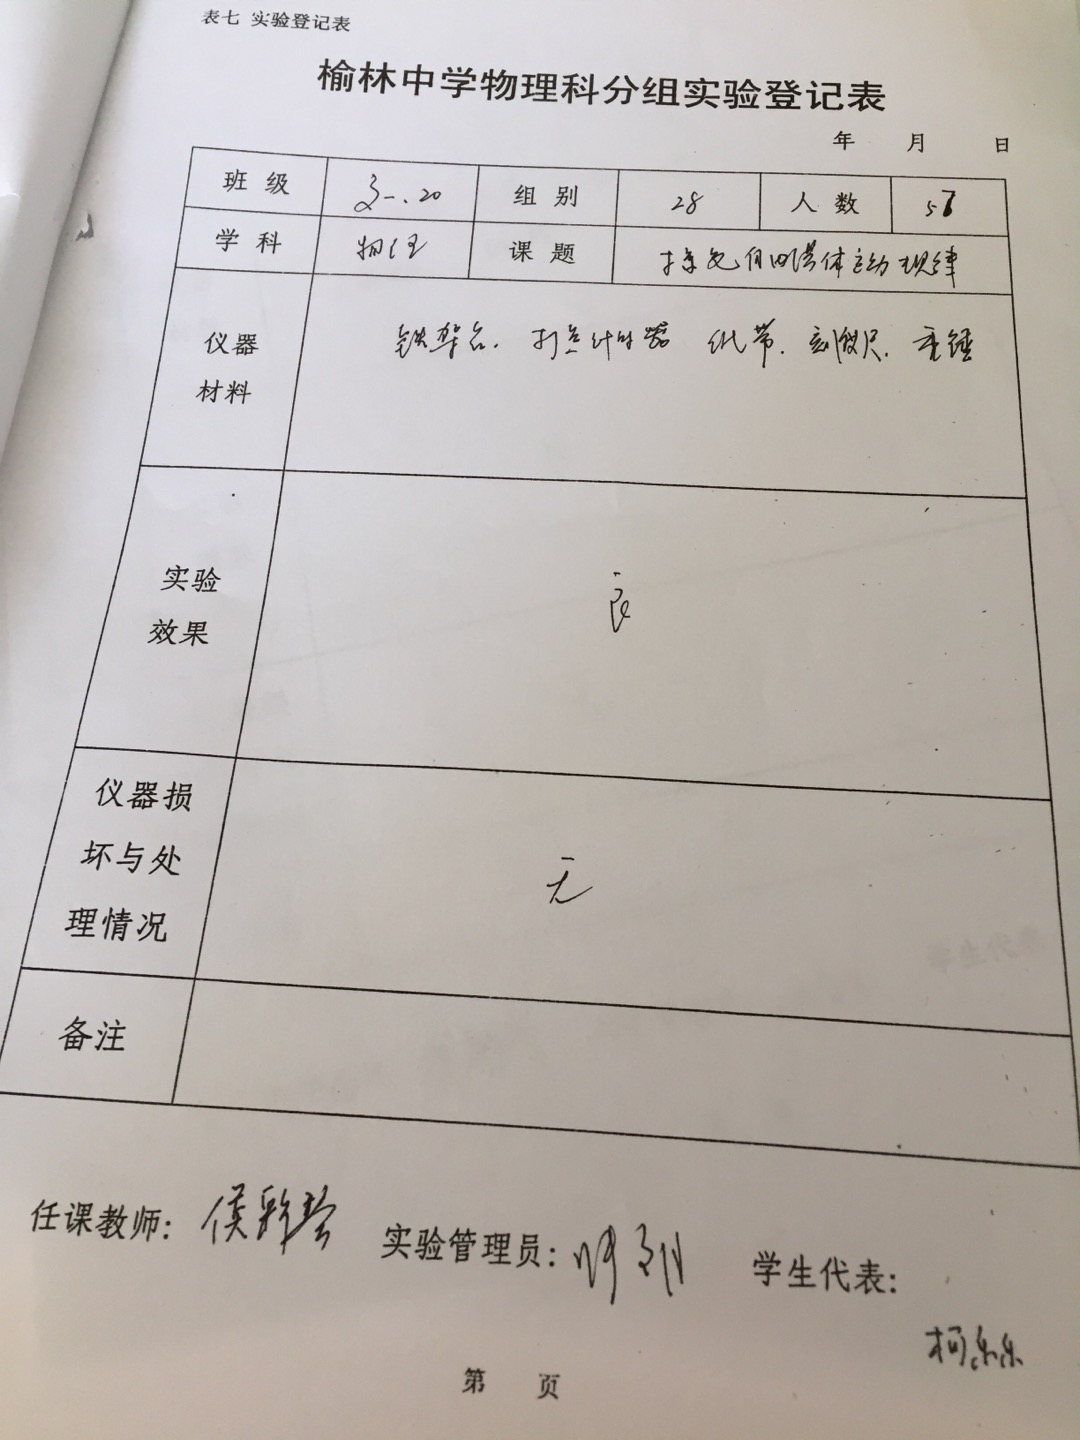 表七 实验登记表
榆林中学物理科分组实验登记表
年 月 日
班级 高一.20 组别 28 人数 56
学科 物理 课题 探究自由落体运动规律
仪器
材料
铁架台. 打点计时器 纸带. 刻度尺. 重锤
实验
效果
良
仪器损
坏与处
理情况
无
备注
任课教师: 侯彩琴 实验管理员: 学生代表:
柯乐乐
第 页